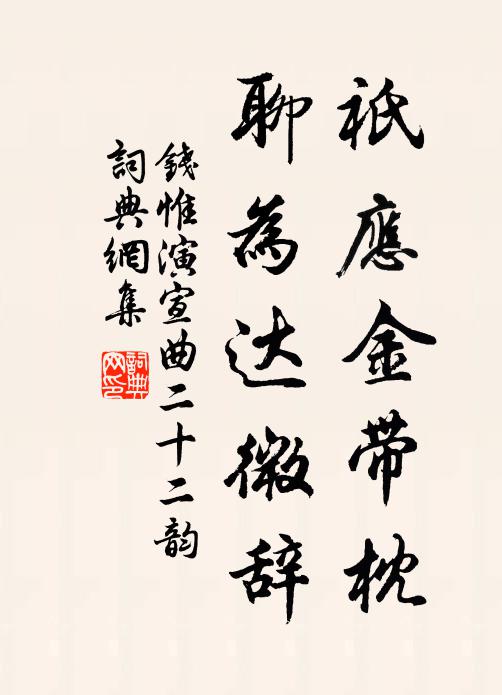 祇應金带枕
聊為达微辞
錢惟演宣曲二十二韵
詞典網集
詞典
网印